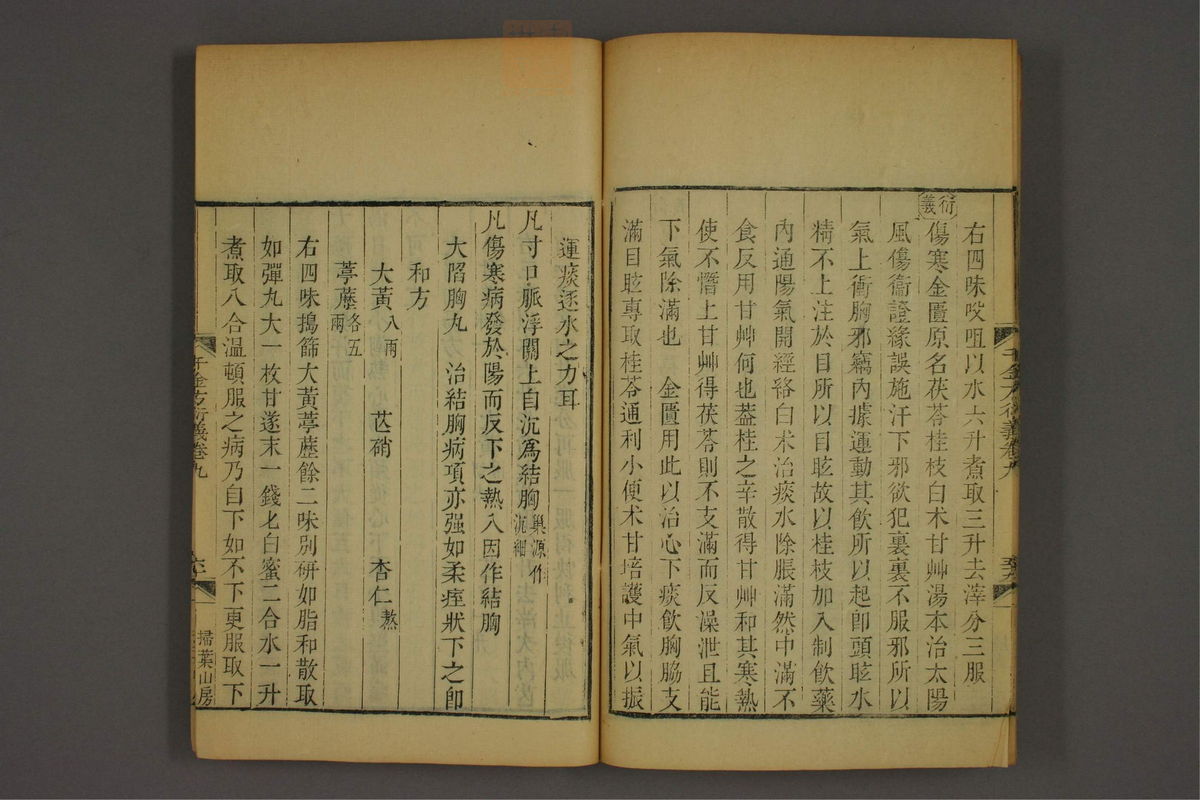 右四味㕮咀以水六升煮取三升去滓分三服
衍義
傷寒金匱原名茯苓桂枝白朮甘艸湯本治太陽
風傷衞證緣誤施汗下邪欲犯裏裏不服邪所以
氣上衝胸邪竊內據運動其飲所以起卽頭眩水
精不上注於目所以目眩故以桂枝加入制飲藥
內通陽氣開經絡白朮治痰水除脹滿然中滿不
食反用甘艸何也葢桂之辛散得甘艸和其寒熱
使不僭上甘艸得茯苓則不支滿而反澡泄且能
下氣除滿也　金匱用此以治心下痰飲胸脇支
滿目眩專取桂苓通利小便朮甘培護中氣以振
千金方衍義卷九
運痰逐水之力耳
凡寸口脈浮關上自沉爲結胸巢源作沉細
凡傷寒病發於陽而反下之熱入因作結胸
大陷胸丸　治結胸病項亦强如柔痓狀下之卽
和方
大黃八兩　芒硝　杏仁熬
葶藶各五兩
右四味搗篩大黃葶藶餘二味別研如脂和散取
如彈丸大一枚甘遂末一錢匕白蜜二合水一升
煮取八合溫頓服之病乃自下如不下更服取下
千金方衍義卷九
掃葉山房